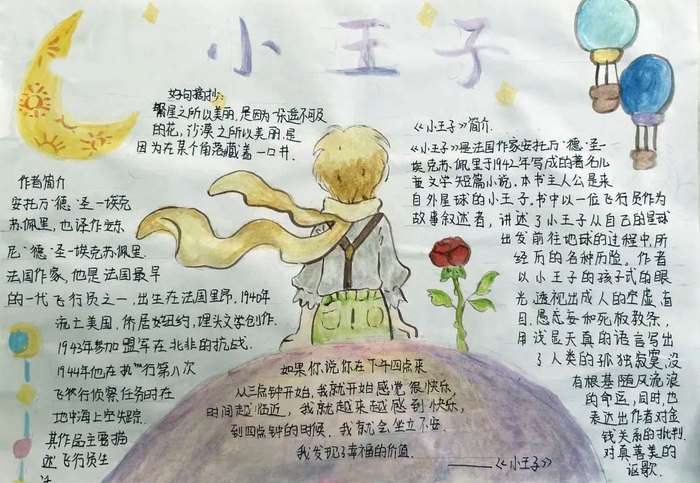 小王子
好句摘抄:
繁星之所以美丽,是因为你遥不可及
的花,沙漠之所以美丽,是
因为在某个角落藏着一口井.
作者简介
安托万·德·圣-埃克
苏佩里,也译作安东
尼·德·圣-埃克苏佩里.
法国作家,他是法国最早
的一代飞行员之一,出生在法国里昂.1940年
流亡美国,侨居纽约,埋头文学创作.
1943年参加盟军在北非的抗战.
1944年他在执行第八次
飞行侦察任务时在
地中海上空失踪.
其作品主要描
述飞行员生
《小王子》简介.
《小王子》是法国作家安托万·德·圣-
埃克苏佩里于1942年写成的著名儿
童文学短篇小说,本书主人公是来
自外星球的小王子,书中以一位飞行员作为
故事叙述者,讲述了小王子从自己的星球
出发前往地球的过程中,所
经历的各种历险.作者
以小王子的孩子式的眼
光,透视出成人的空虚,盲
目,愚妄和死板教条,
用浅显天真的语言写出
了人类的孤独寂寞,没
有根基随风流浪
的命运,同时,也
表达出作者对金
钱关系的批判,
对真善美的
讴歌.
如果你说你在下午四点来
从三点钟开始,我就开始感觉很快乐,
时间越临近,我就越来越感到快乐,
到四点钟的时候,我就会坐立不安,
我发现了幸福的价值.
——《小王子》